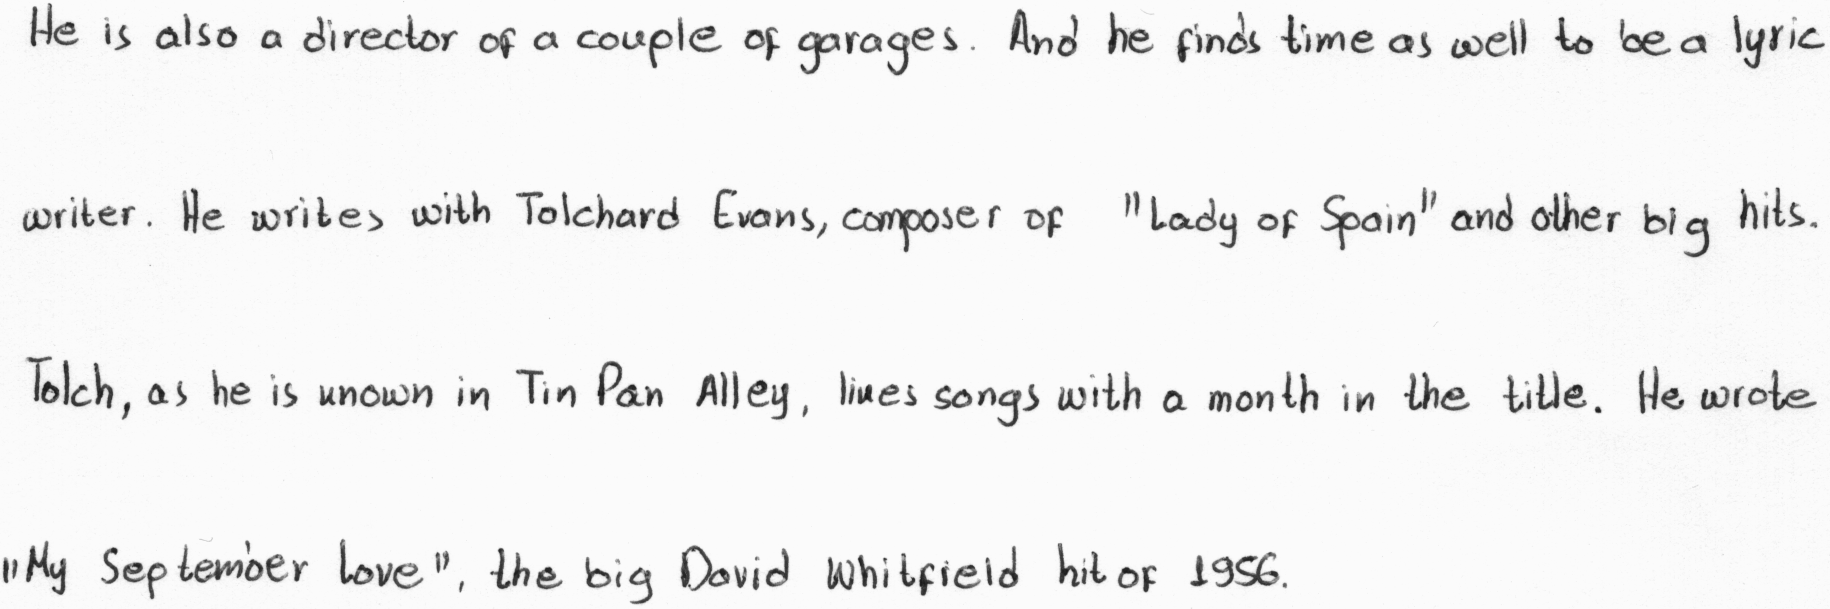 He is also a director of a couple of garages. And he finds time as well to be a lyric
writer. He writes with Tolchard Evans, composer of "Lady of Spain" and other big hits.
Tolch, as he is known in Tin Pan Alley, likes songs with a month in the title. He wrote
"My September love", the big David Whitfield hit of 1956.